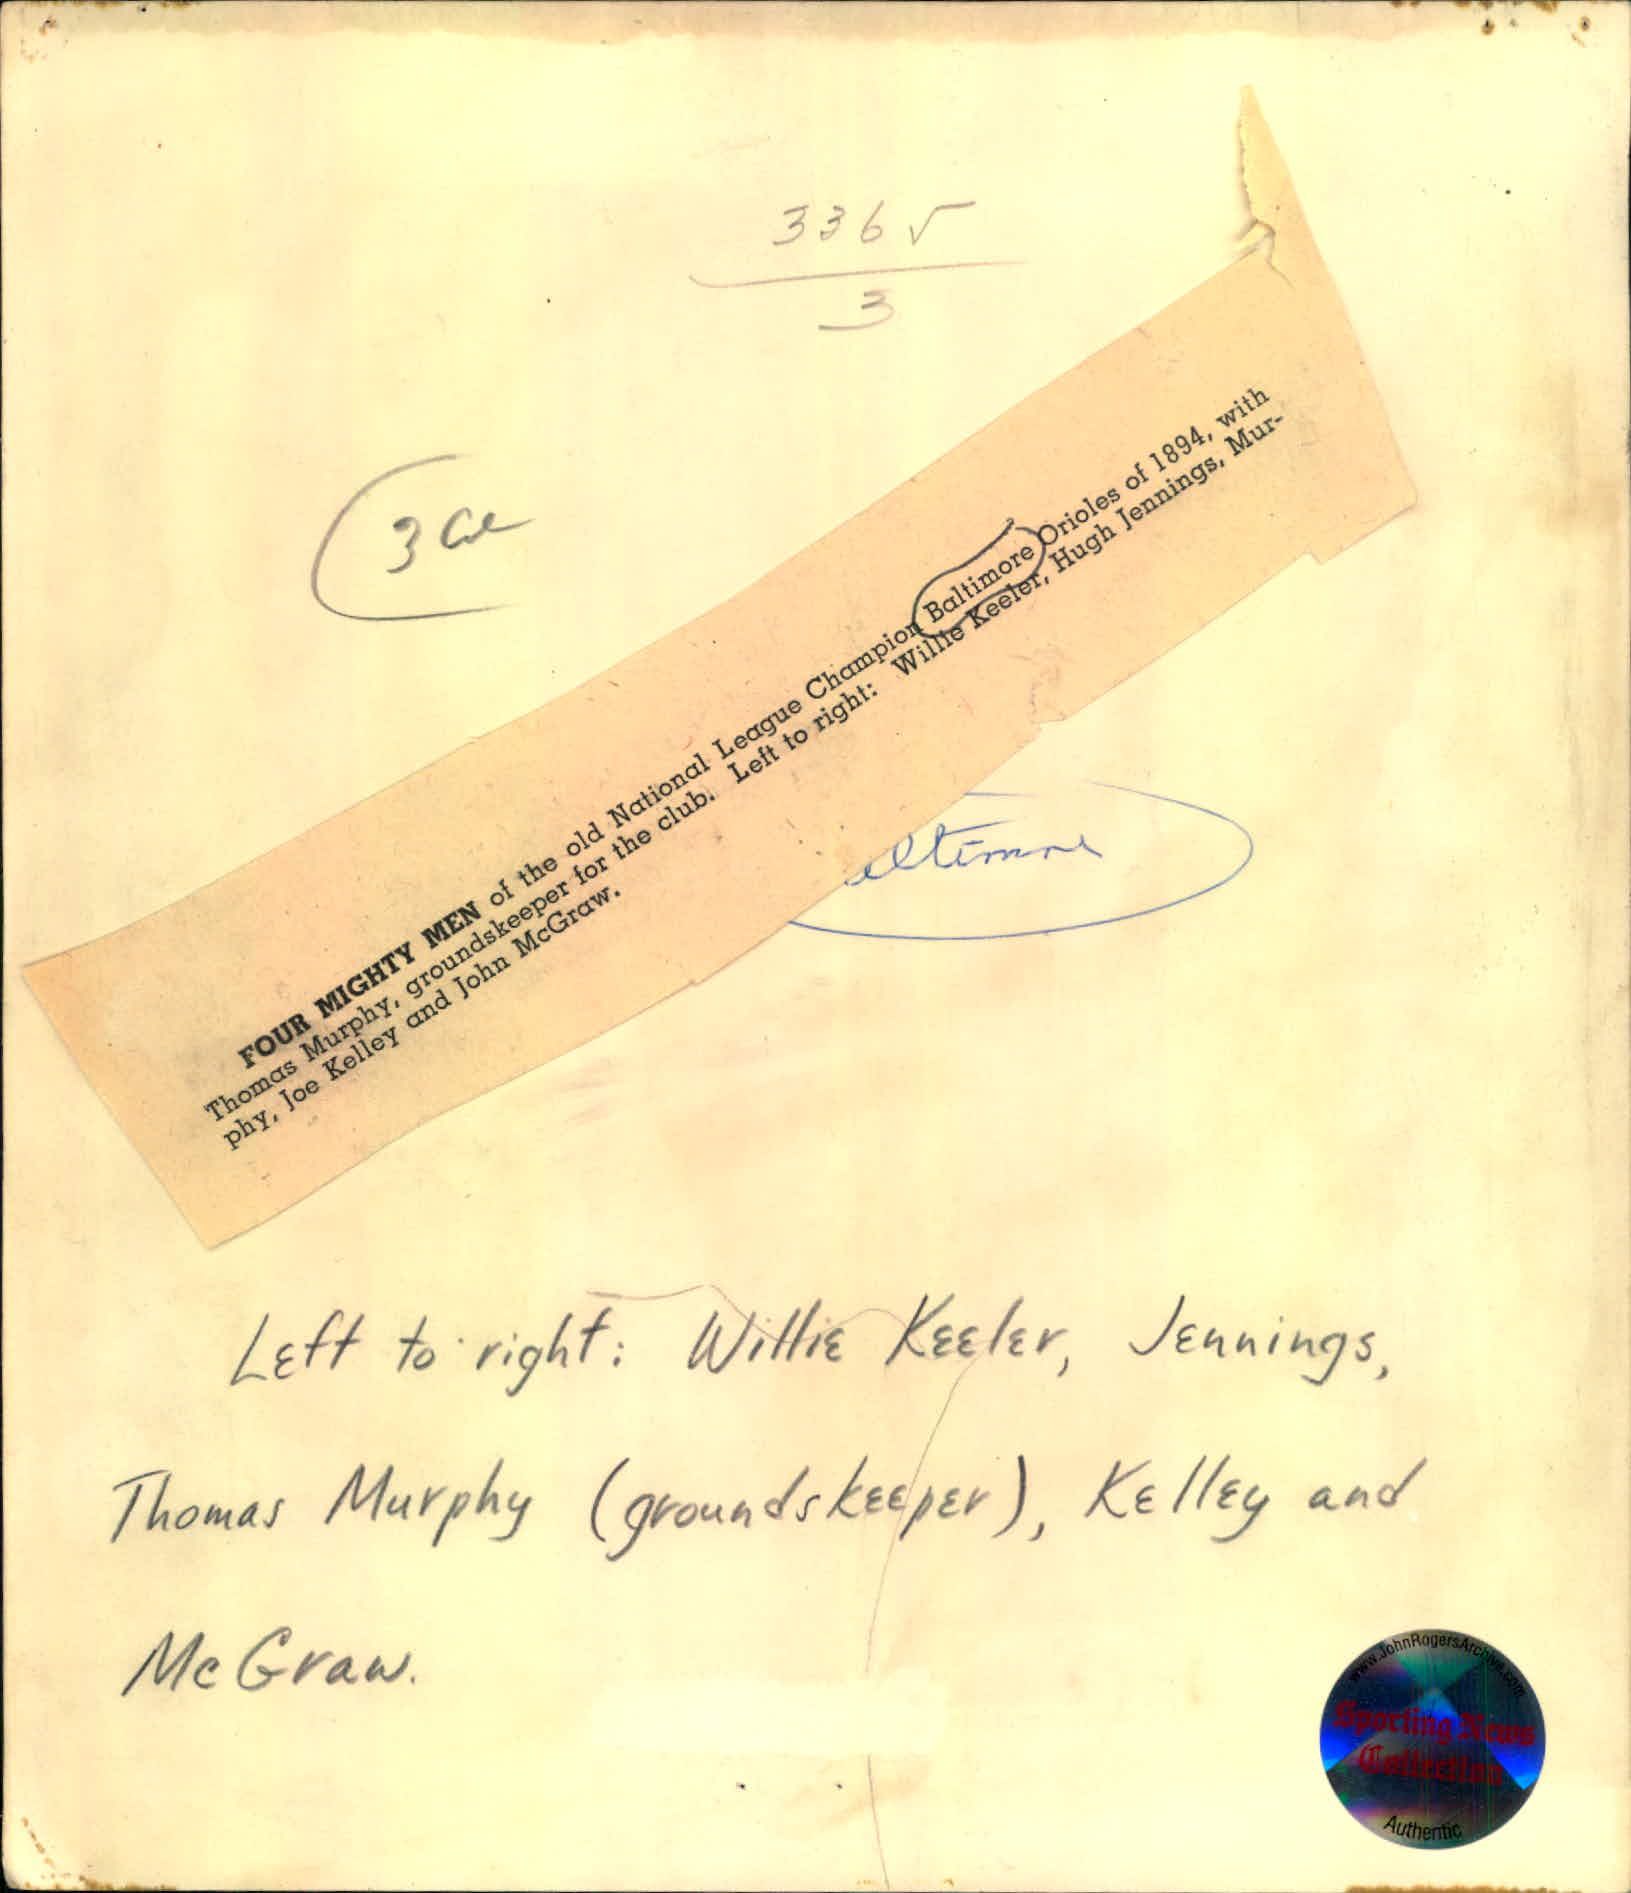 3365
3
3 col
FOUR MIGHTY MEN of the old National League Champion Baltimore Orioles of 1894, with
Thomas Murphy, groundskeeper for the club. Left to right: Willie Keeler, Hugh Jennings, Mur-
phy, Joe Kelley and John McGraw.
altimore
Left to right: Willie Keeler, Jennings,
Thomas Murphy (groundskeeper), Kelley and
McGraw.
www.JohnRogersArchive.com
Sporting News
Collection
Authentic